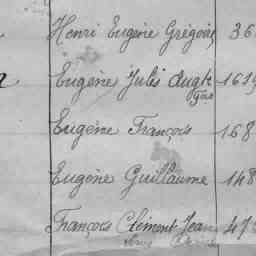 Henri Eugène Grégoire 36
Eugène Jules Augte 1619
Eugène François 168
Eugène Guillaume 148
François Clément Jean 47